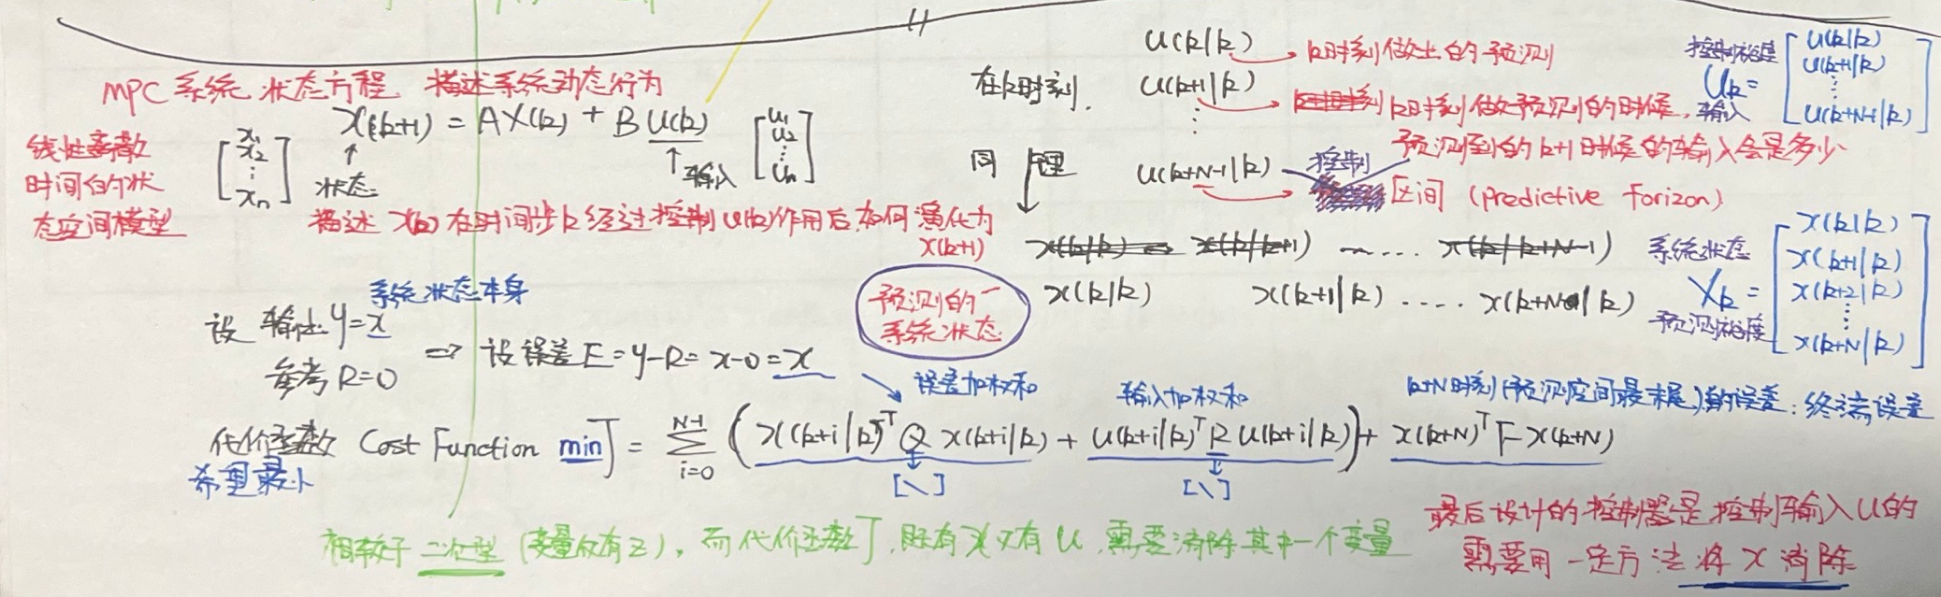 MPC 系统 状态方程 描述系统动态行为
线性离散
时间的状
态空间模型
[x1 x2 ⋮ xn]
x(k+1) = Ax(k) + Bu(k)
[u1 u2 ⋮ un]
↑ 状态
↑ 输入
描述 x(k) 在时间步 k 经过控制 u(k) 作用后,如何演化为
x(k+1)
在k时刻.
u(k|k) → k时刻做出的预测
u(k+1|k) → k时刻做预测的时候,
预测到的 k+1 时候的输入会是多少
⋮
u(k+N-1|k) → 控制
区间 (predictive forizon)
控制裕度
输入
Uk = [u(k|k) u(k+1|k) ⋮ u(k+N-1|k)]
同理
x(k|k) x(k|k+1) ~ .... x(k|k+N-1)
预测的
系统状态
x(k|k) x(k+1|k) .... x(k+N|k)
系统状态
Xk =
预测裕度
[x(k|k) x(k+1|k) x(k+2|k) ⋮ x(k+N|k)]
系统状态本身
设 输出 y=x
参考 R=0
⇒ 设误差 E = y-R = x-0 = x
误差加权和
输入加权和
k+N时刻(预测空间最末尾)的误差: 终端误差
代价函数 Cost Function min J = Σ_{i=0}^{N-1} (x(k+i|k)^T Q x(k+i|k) + u(k+i|k)^T R u(k+i|k)) + x(k+N)^T F x(k+N)
希望最小
[\] [\]
相较于 二次型 (变量仅有z), 而代价函数J, 既有x又有u, 需要消除其中一个变量
最后设计的控制器是控制输入u的
需要用一定方法将x消除